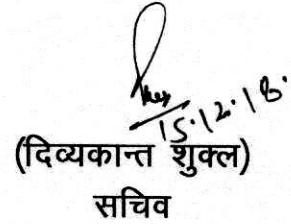 15.12.18.
(दिव्यकान्त शुक्ल)
सचिव